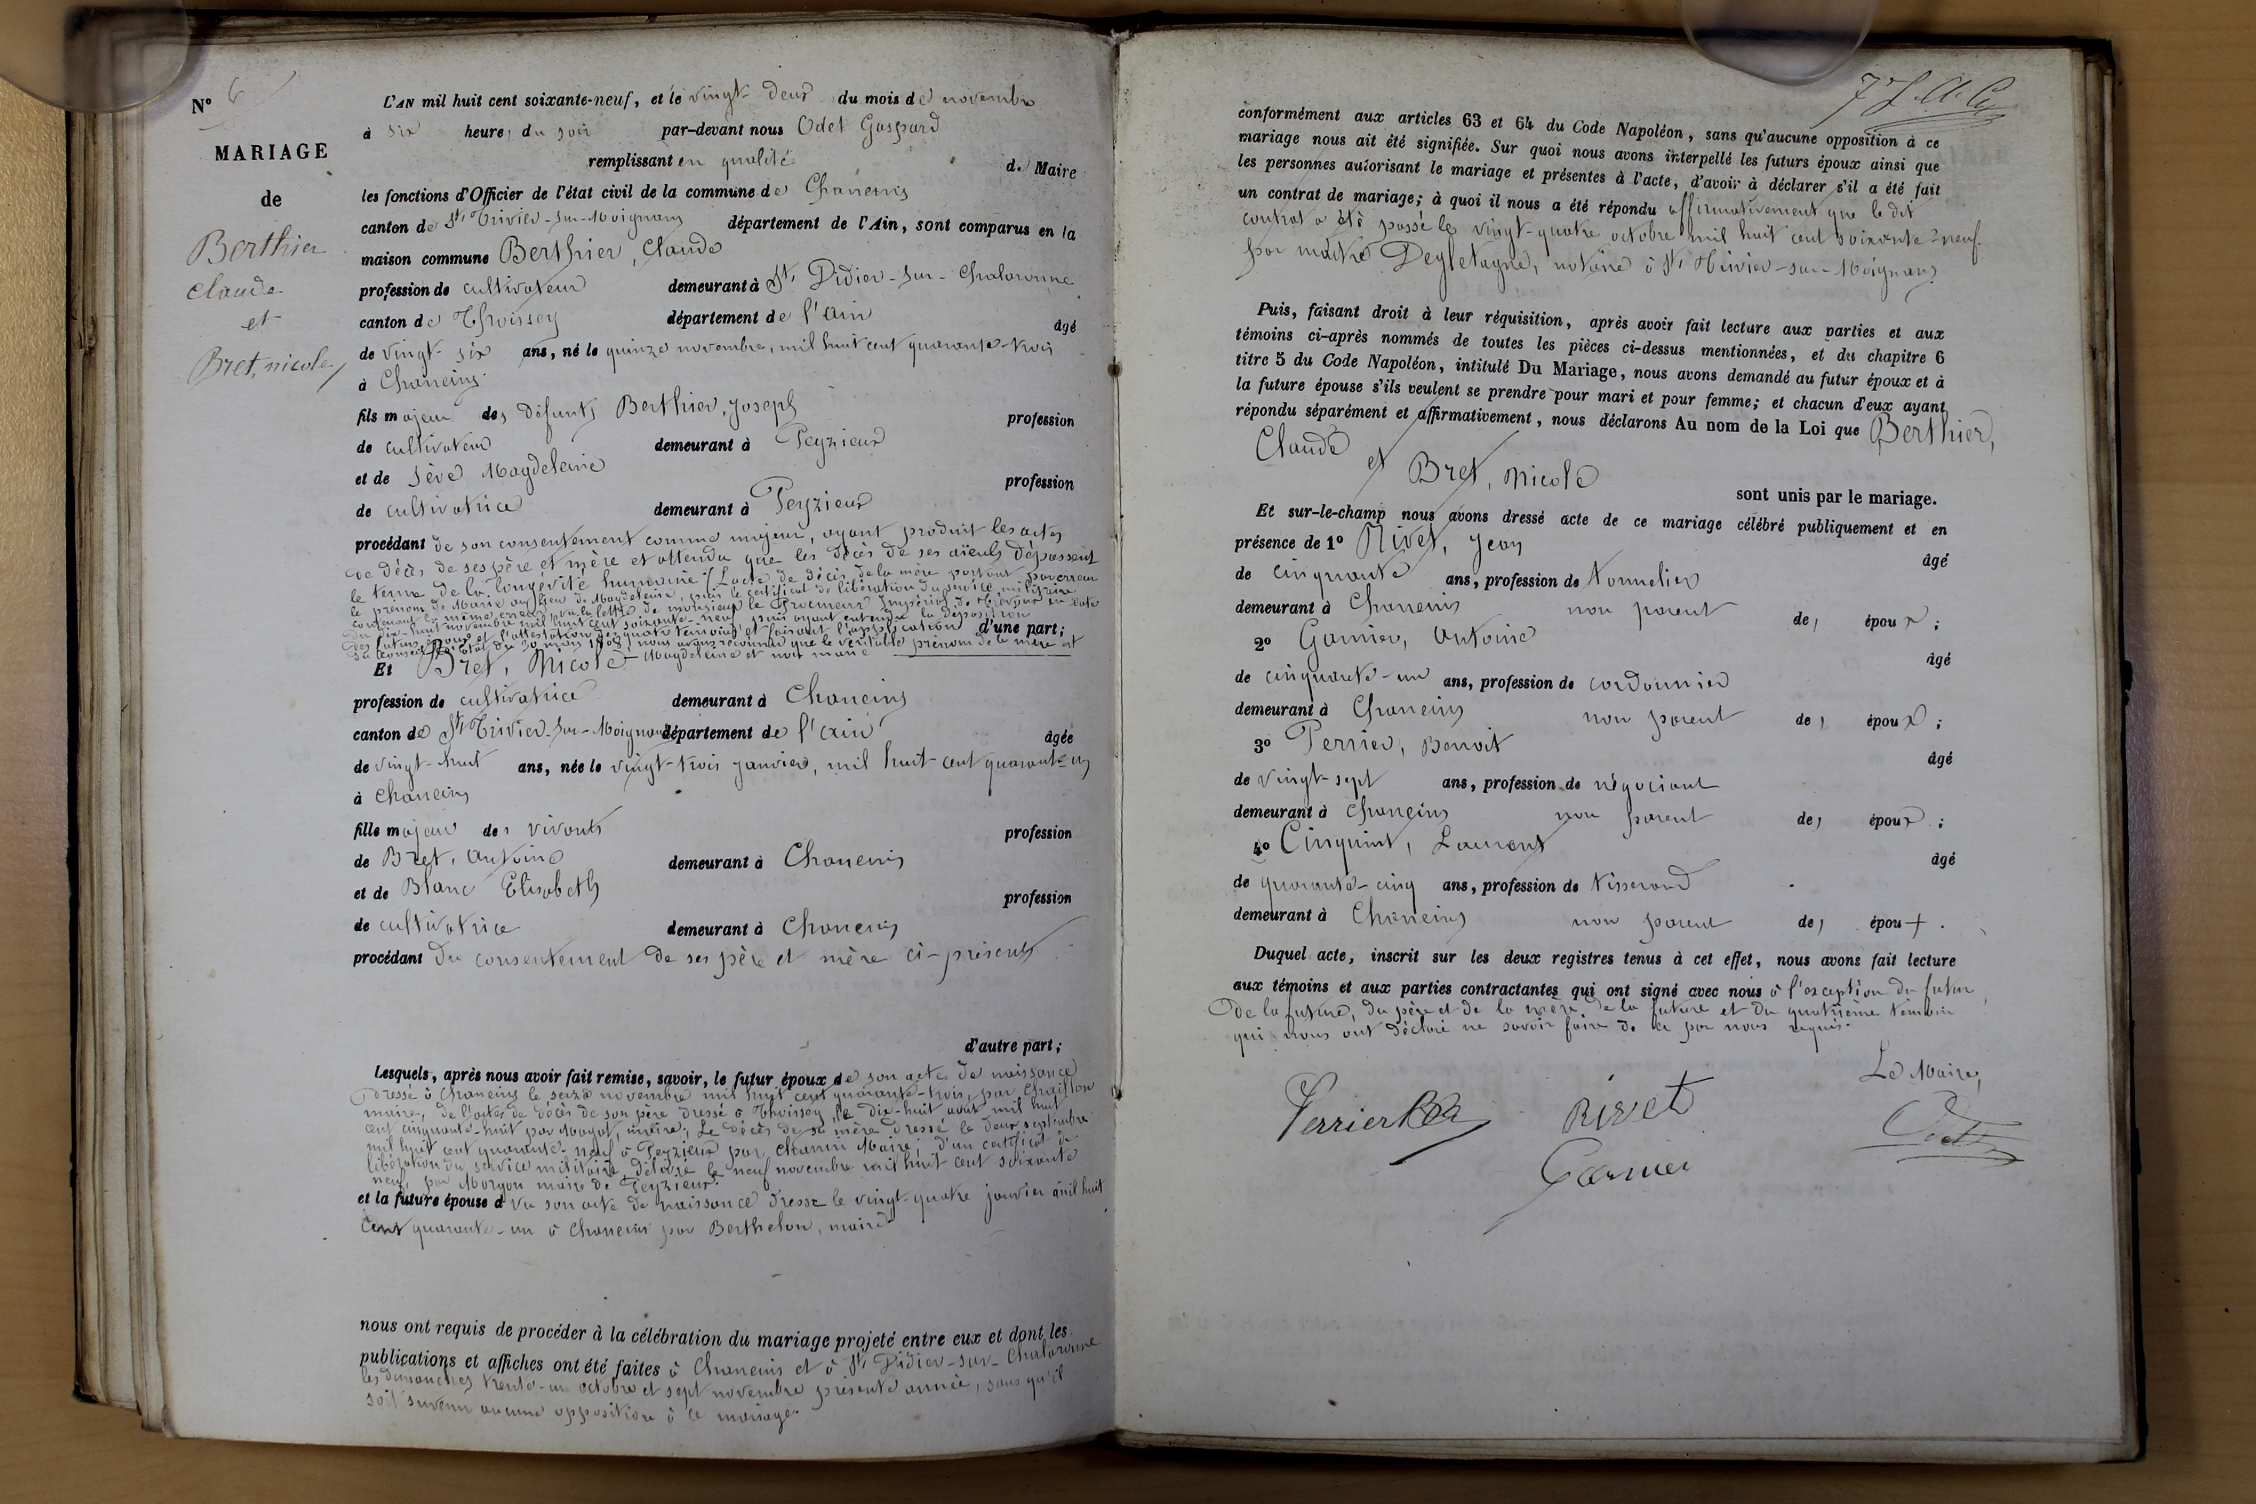 N° 6
MARIAGE
de
Berthier
Claude
et
Bret, nicole
L'AN mil huit cent soixante-neuf, et le vingt deux du mois de novembre
à six heures du soir par-devant nous Odet Gaspard
remplissant en qualité de Maire
les fonctions d'Officier de l'état civil de la commune de Chaneins
canton de St Trivier-sur-Moignans département de l'Ain, sont comparus en la
maison commune Berthier, Claude
profession de cultivateur demeurant à St Didier-sur-Chalaronne
canton de Thoissey département de l'ain âgé
de vingt-six ans, né le quinze novembre, mil huit cent quarante-trois
à Chaneins
fils majeur des défunts Berthier, Joseph profession
de cultivateur demeurant à Peyzieux
et de Sève Magdeleine profession
de cultivatrice demeurant à Peyzieux
procédant de son consentement comme majeur, ayant produit les actes
de décès de ses père et mère et attendu que les décès de ses aïeuls dépassent
le terme de la longévité humaine / L'acte de décès de la mère portant par erreur
le prénom de Marie au lieu de Magdeleine, puis le certificat de libération du service militaire
contenant la même erreur, vu la lettre de monsieur le Procureur Impérial de Trévoux en date
du dix-huit novembre mil huit cent soixante-neuf, puis ayant entendu la déposition
des futurs époux et l'attestation des quatre témoins et faisant l'application d'une part;
du conseil d'état du 30 mars 1808, nous avons reconnu que le véritable prénom de la mère est
Et Bret, Nicole Magdeleine et non marie
profession de cultivatrice demeurant à Chaneins
canton de St Trivier-sur-Moignans département de l'ain âgée
de vingt-huit ans, née le vingt-trois janvier, mil huit cent quarante un
à Chaneins
fille majeur des vivants profession
de Bret, Antoine demeurant à Chaneins
et de Blanc Elisabeth profession
de cultivatrice demeurant à Chaneins
procédant du consentement de ses père et mère ci-présents
d'autre part;
Lesquels, après nous avoir fait remise, savoir, le futur époux de son acte de naissance
dressé à Chaneins le seize novembre mil huit cent quarante-trois, par Chaillon
maire, de l'acte de décès de son père dressé à Thoissey le dix-huit août mil huit
cent cinquante-huit par Magat, maire, Le décès de sa mère dressé le deux septembre
mil huit cent quarante-neuf à Peyzieux par Chanrin Maire, d'un certificat de
libération du service militaire délivré le neuf novembre mil huit cent soixante
neuf, par Morgon maire de Peyzieux.
et la future épouse d vu son acte de naissance dressé le vingt-quatre janvier mil huit
cent quarante-un à Chaneins par Berthelon, maire
nous ont requis de procéder à la célébration du mariage projeté entre eux et dont les
publications et affiches ont été faites à Chaneins et à St Didier-sur-Chalaronne
les dimanches trente-un octobre et sept novembre présente année, sans qu'il
soit survenu aucune opposition à ce mariage.
conformément aux articles 63 et 64 du Code Napoléon, sans qu'aucune opposition à ce
mariage nous ait été signifiée. Sur quoi nous avons interpellé les futurs époux ainsi que
les personnes autorisant le mariage et présentes à l'acte, d'avoir à déclarer s'il a été fait
un contrat de mariage; à quoi il nous a été répondu affirmativement que le dit
contrat a été passé le vingt-quatre octobre mil huit cent soixante-neuf
par maître Deyletagne, notaire à St Trivier-sur-Moignans
Puis, faisant droit à leur réquisition, après avoir fait lecture aux parties et aux
témoins ci-après nommés de toutes les pièces ci-dessus mentionnées, et du chapitre 6
titre 5 du Code Napoléon, intitulé Du Mariage, nous avons demandé au futur époux et à
la future épouse s'ils veulent se prendre pour mari et pour femme; et chacun d'eux ayant
répondu séparément et affirmativement, nous déclarons Au nom de la Loi que Berthier,
Claude et Bret, Nicole
sont unis par le mariage.
Et sur-le-champ nous avons dressé acte de ce mariage célébré publiquement et en
présence de 1° Rivet, Jean âgé
de cinquante ans, profession de tonnelier
demeurant à Chaneins non parent des époux;
2° Garnier, Antoine âgé
de cinquante-un ans, profession de cordonnier
demeurant à Chaneins non parent des époux;
3° Perrier, Benoit âgé
de vingt-sept ans, profession de négociant
demeurant à Chaneins non parent des époux;
4° Cinquint, Laurent âgé
de quarante-cinq ans, profession de tisserand
demeurant à Chaneins non parent des époux.
Duquel acte, inscrit sur les deux registres tenus à cet effet, nous avons fait lecture
aux témoins et aux parties contractantes qui ont signé avec nous à l'exception du futur,
de la future, du père et de la mère de la future et du quatrième témoin
qui nous ont déclaré ne savoir faire de ce par nous requis.
Le Maire,
Perrier Rivet Odet
Garnier